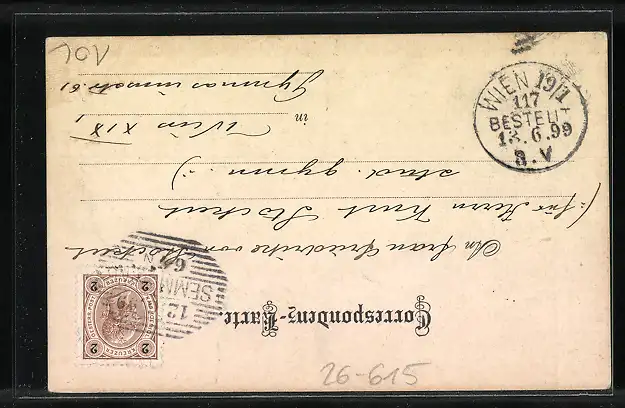 Correspondenz-Karte.
An Frau Friederike von Stockert
(= für Herrn Kurt Stockert
stud. gymn. :)
in Wien XIX/1
Gymnasiumstr. 61
WIEN 19/1
117
BESTELLT
13.6.99
8.V
SEMM
12
2
2
2
2
KREUZER
26-615